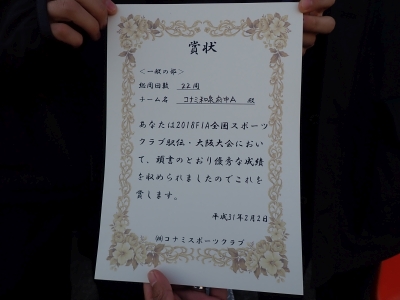 賞状
＜一般の部＞
総周回数 22周
チーム名 コナミ和泉府中A 殿
あなたは2018FIA全国スポーツ
クラブ駅伝・大阪大会におい
て、頭書のとおり優秀な成績
を収められましたのでこれを
賞します。
平成31年2月2日
㈱コナミスポーツクラブ